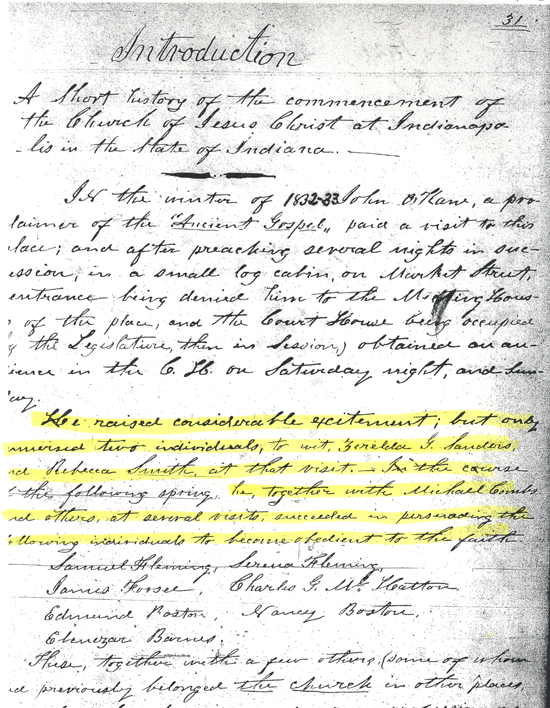 31
Introduction
A short history of the commencement of
the Church of Jesus Christ at Indianapo-
-lis in the State of Indiana. —
IN the winter of 1832-33 John O'Kane, a pro
laimer of the "Ancient Gospel" paid a visit to this
lace; and after preaching several nights in suc-
ession, in a small log cabin, on Market Street,
entrance being denied him to the Meeting Hous-
of the place, and the Court House being occupied
the Legislature, then in Session,) obtained an au-
ience in the C. H. on Saturday night, and Sun-
ay.
He raised considerable excitement; but only
mersed two individuals, to wit, Zerelda G. Sanders,
nd Rebecca Smith at that visit. — In the course
the following spring, he, together with Michael Combs
nd others, at several visits, succeeded in persuading the
ollowing individuals to become obedient to the faith
Samuel Fleming, Serena Fleming,
James Forsee, Charles G. McHatton
Edmund Boston, Nancy Boston,
Ebenezar Barnes.
These, together with a few others, (some of whom
d previously belonged the church in other places,